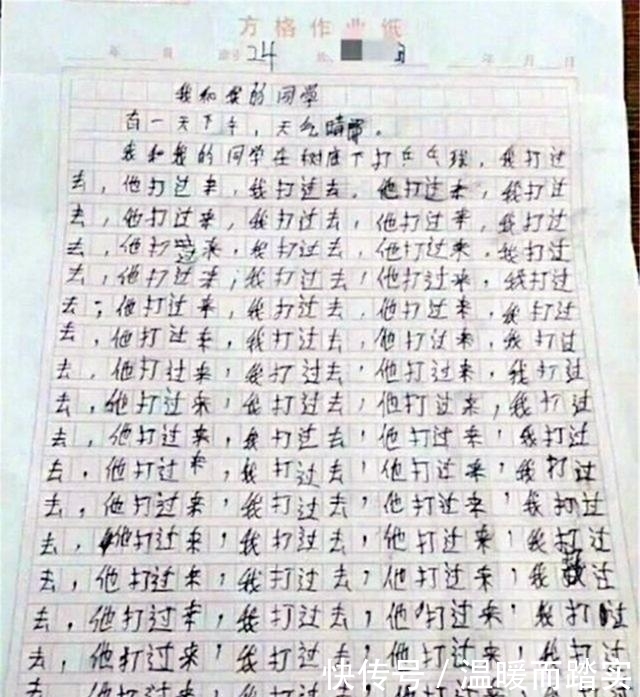 方格作业纸
年 月 24 年 月 日
我和我的同学
有一天下午，天气晴
我和我的同学在树底下打乒乓球，我打过
去，他打过来，我打过去，他打过来，我打过
去，他打过来，我打过去，他打过来，我打过
去，他打过来，我打过去，他打过来，我打过
去，他打过来，我打过去，他打过来，我打过
去，他打过来，我打过去，他打过来，我打过
去，他打过来，我打过去，他打过来，我打过
去，他打过来，我打过去，他打过来，我打过
去，他打过来，我打过去，他打过来，我打过
去，他打过来，我打过去，他打过来，我打过
去，他打过来，我打过去，他打过来，我打过
去，他打过来，我打过去，他打过来，我打过
去，他打过来，我打过去，他打过来，我打过
去，他打过来，我打过去，他打过来，我过
去，他打过来，我打过去，他打过来，我打过
去，他打过来，我打过去，他打过来，我打过
快传号 / 温暖而踏实